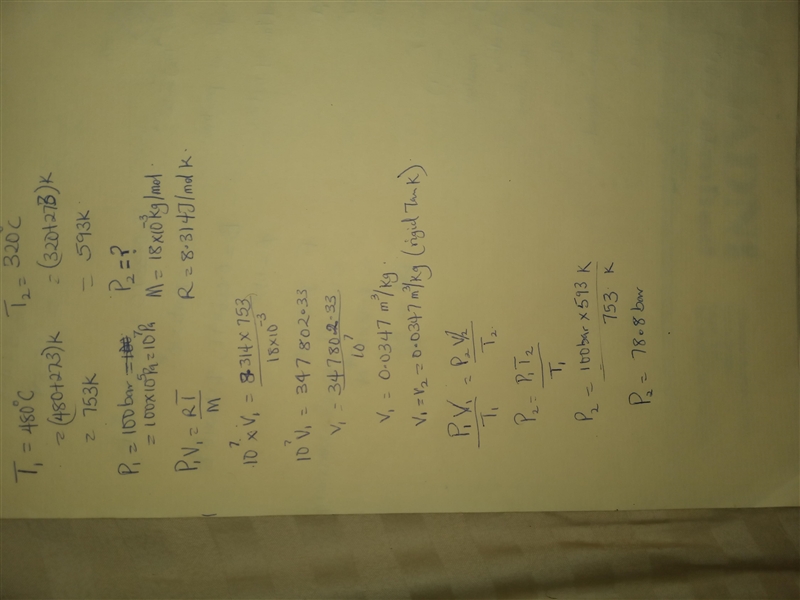 T₁ = 480°C T₂ = 320°C
= (480+273)K = (320+273)K
= 753K = 593K
P₁ = 100bar P₂ = ?
= 100×10⁵Pa = 10⁷Pa M = 18×10⁻³kg/mol.
P₁V₁ = RT/M R = 8.314J/mol K.
10⁷ × V₁ = 8.314×753/18×10⁻³
10⁷V₁ = 347802.33
V₁ = 347802.33/10⁷
V₁ = 0.0347 m³/kg.
V₁ = V₂ = 0.0347m³/kg (rigid Tank).
P₁V₁/T₁ = P₂V₂/T₂
P₂ = P₁T₂/T₁
P₂ = 100bar × 593 K/753 K
P₂ = 78.8 bar